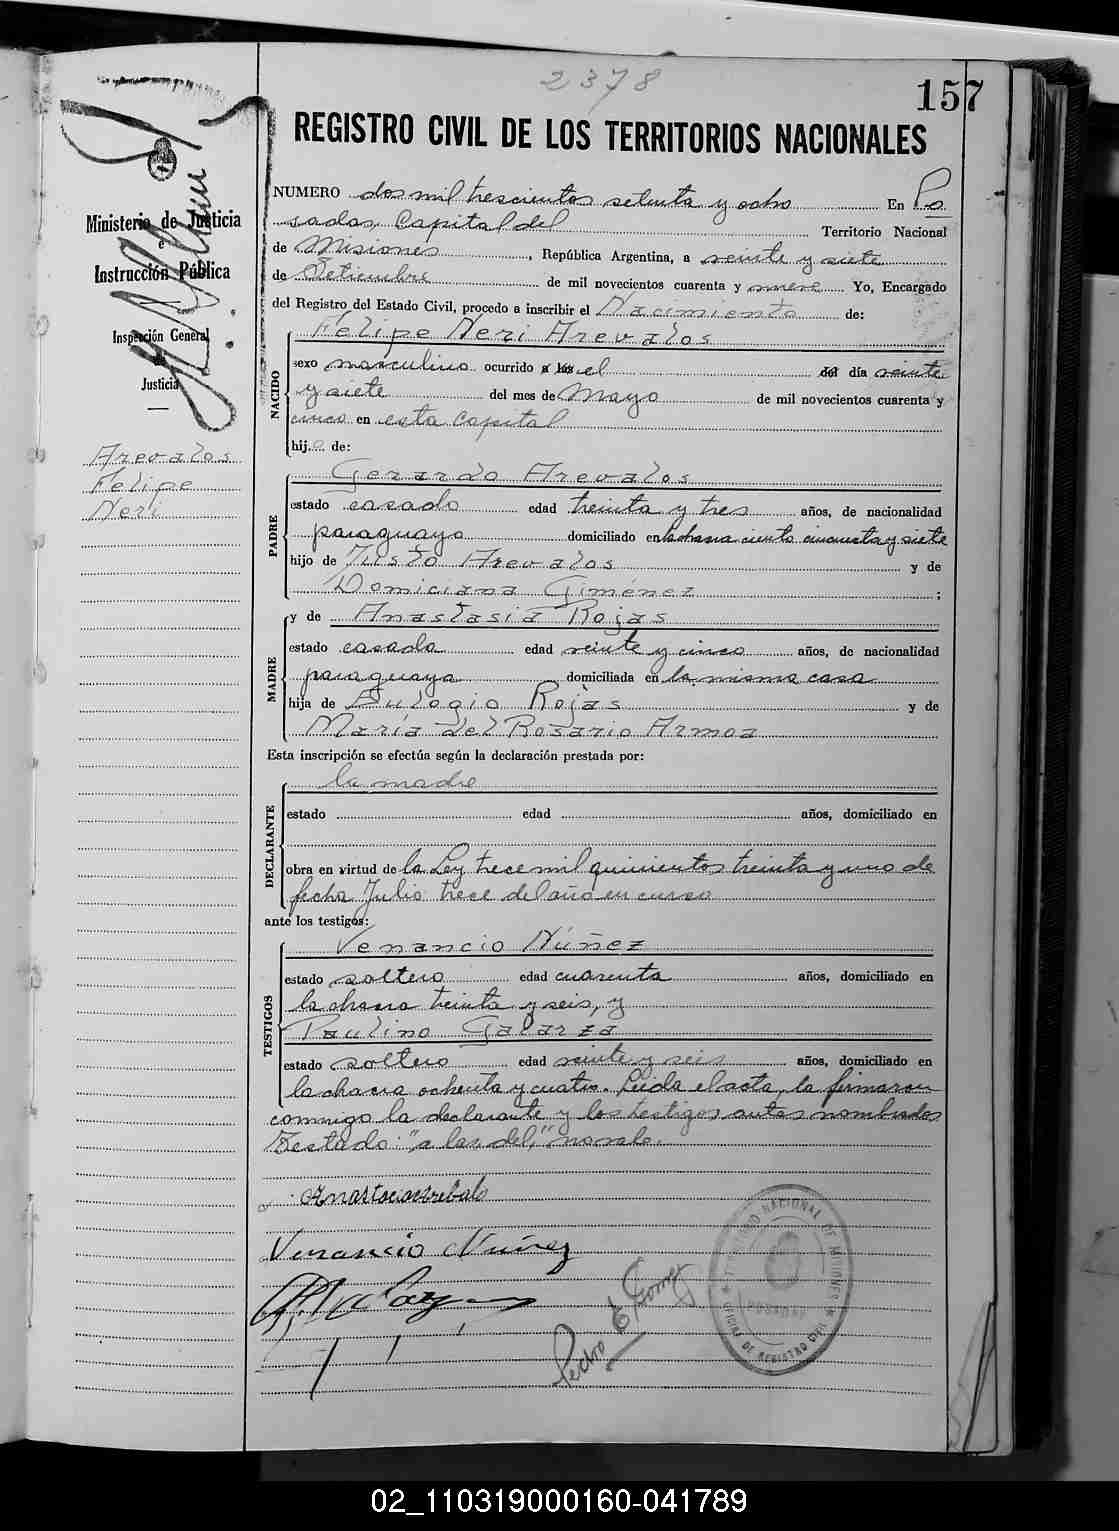 2378
157
REGISTRO CIVIL DE LOS TERRITORIOS NACIONALES
Ministerio de Justicia
e
Instrucción Pública
Inspección General
de
Justicia
Arevalos
Felipe
Neri
NUMERO dos mil trescientos setenta y ocho En Po
sadas, Capital del Territorio Nacional
de Misiones, República Argentina, a veinte y siete
de Setiembre de mil novecientos cuarenta y nueve Yo, Encargado
del Registro del Estado Civil, procedo a inscribir el Nacimiento de:
NACIDO
Felipe Neri Arevalos
sexo masculino ocurrido a las el del día veinte
y siete del mes de Mayo de mil novecientos cuarenta y
cinco en esta Capital
hijo de:
PADRE
Gerardo Arevalos
estado casado edad treinta y tres años, de nacionalidad
paraguayo domiciliado en la chacra ciento cincuenta y siete
hijo de Justo Arevalos y de
Domiciana Giménez;
MADRE
y de Anastasia Rojas
estado casada edad veinte y cinco años, de nacionalidad
paraguaya domiciliada en la misma casa
hija de Eulogio Rojas y de
María del Rosario Armoa
Esta inscripción se efectúa según la declaración prestada por:
DECLARANTE
la madre
estado edad años, domiciliado en
obra en virtud de la Ley trece mil quinientos treinta y uno de
fecha Julio trece del año en curso
ante los testigos:
TESTIGOS
Venancio Núñez
estado soltero edad cuarenta años, domiciliado en
la chacra treinta y seis, y
Paulino Galarza
estado soltero edad veinte y seis años, domiciliado en
la chacra ochenta y cuatro. Leída el acta, la firmaron
conmigo la declarante y los testigos antes nombrados
Testado: "a las, del," no vale.
Venancio Núñez
Pedro E. Gomez
TERRITORIO NACIONAL DE MISIONES
POSADAS
OFICINA DE REGISTRO CIVIL
02_110319000160-041789